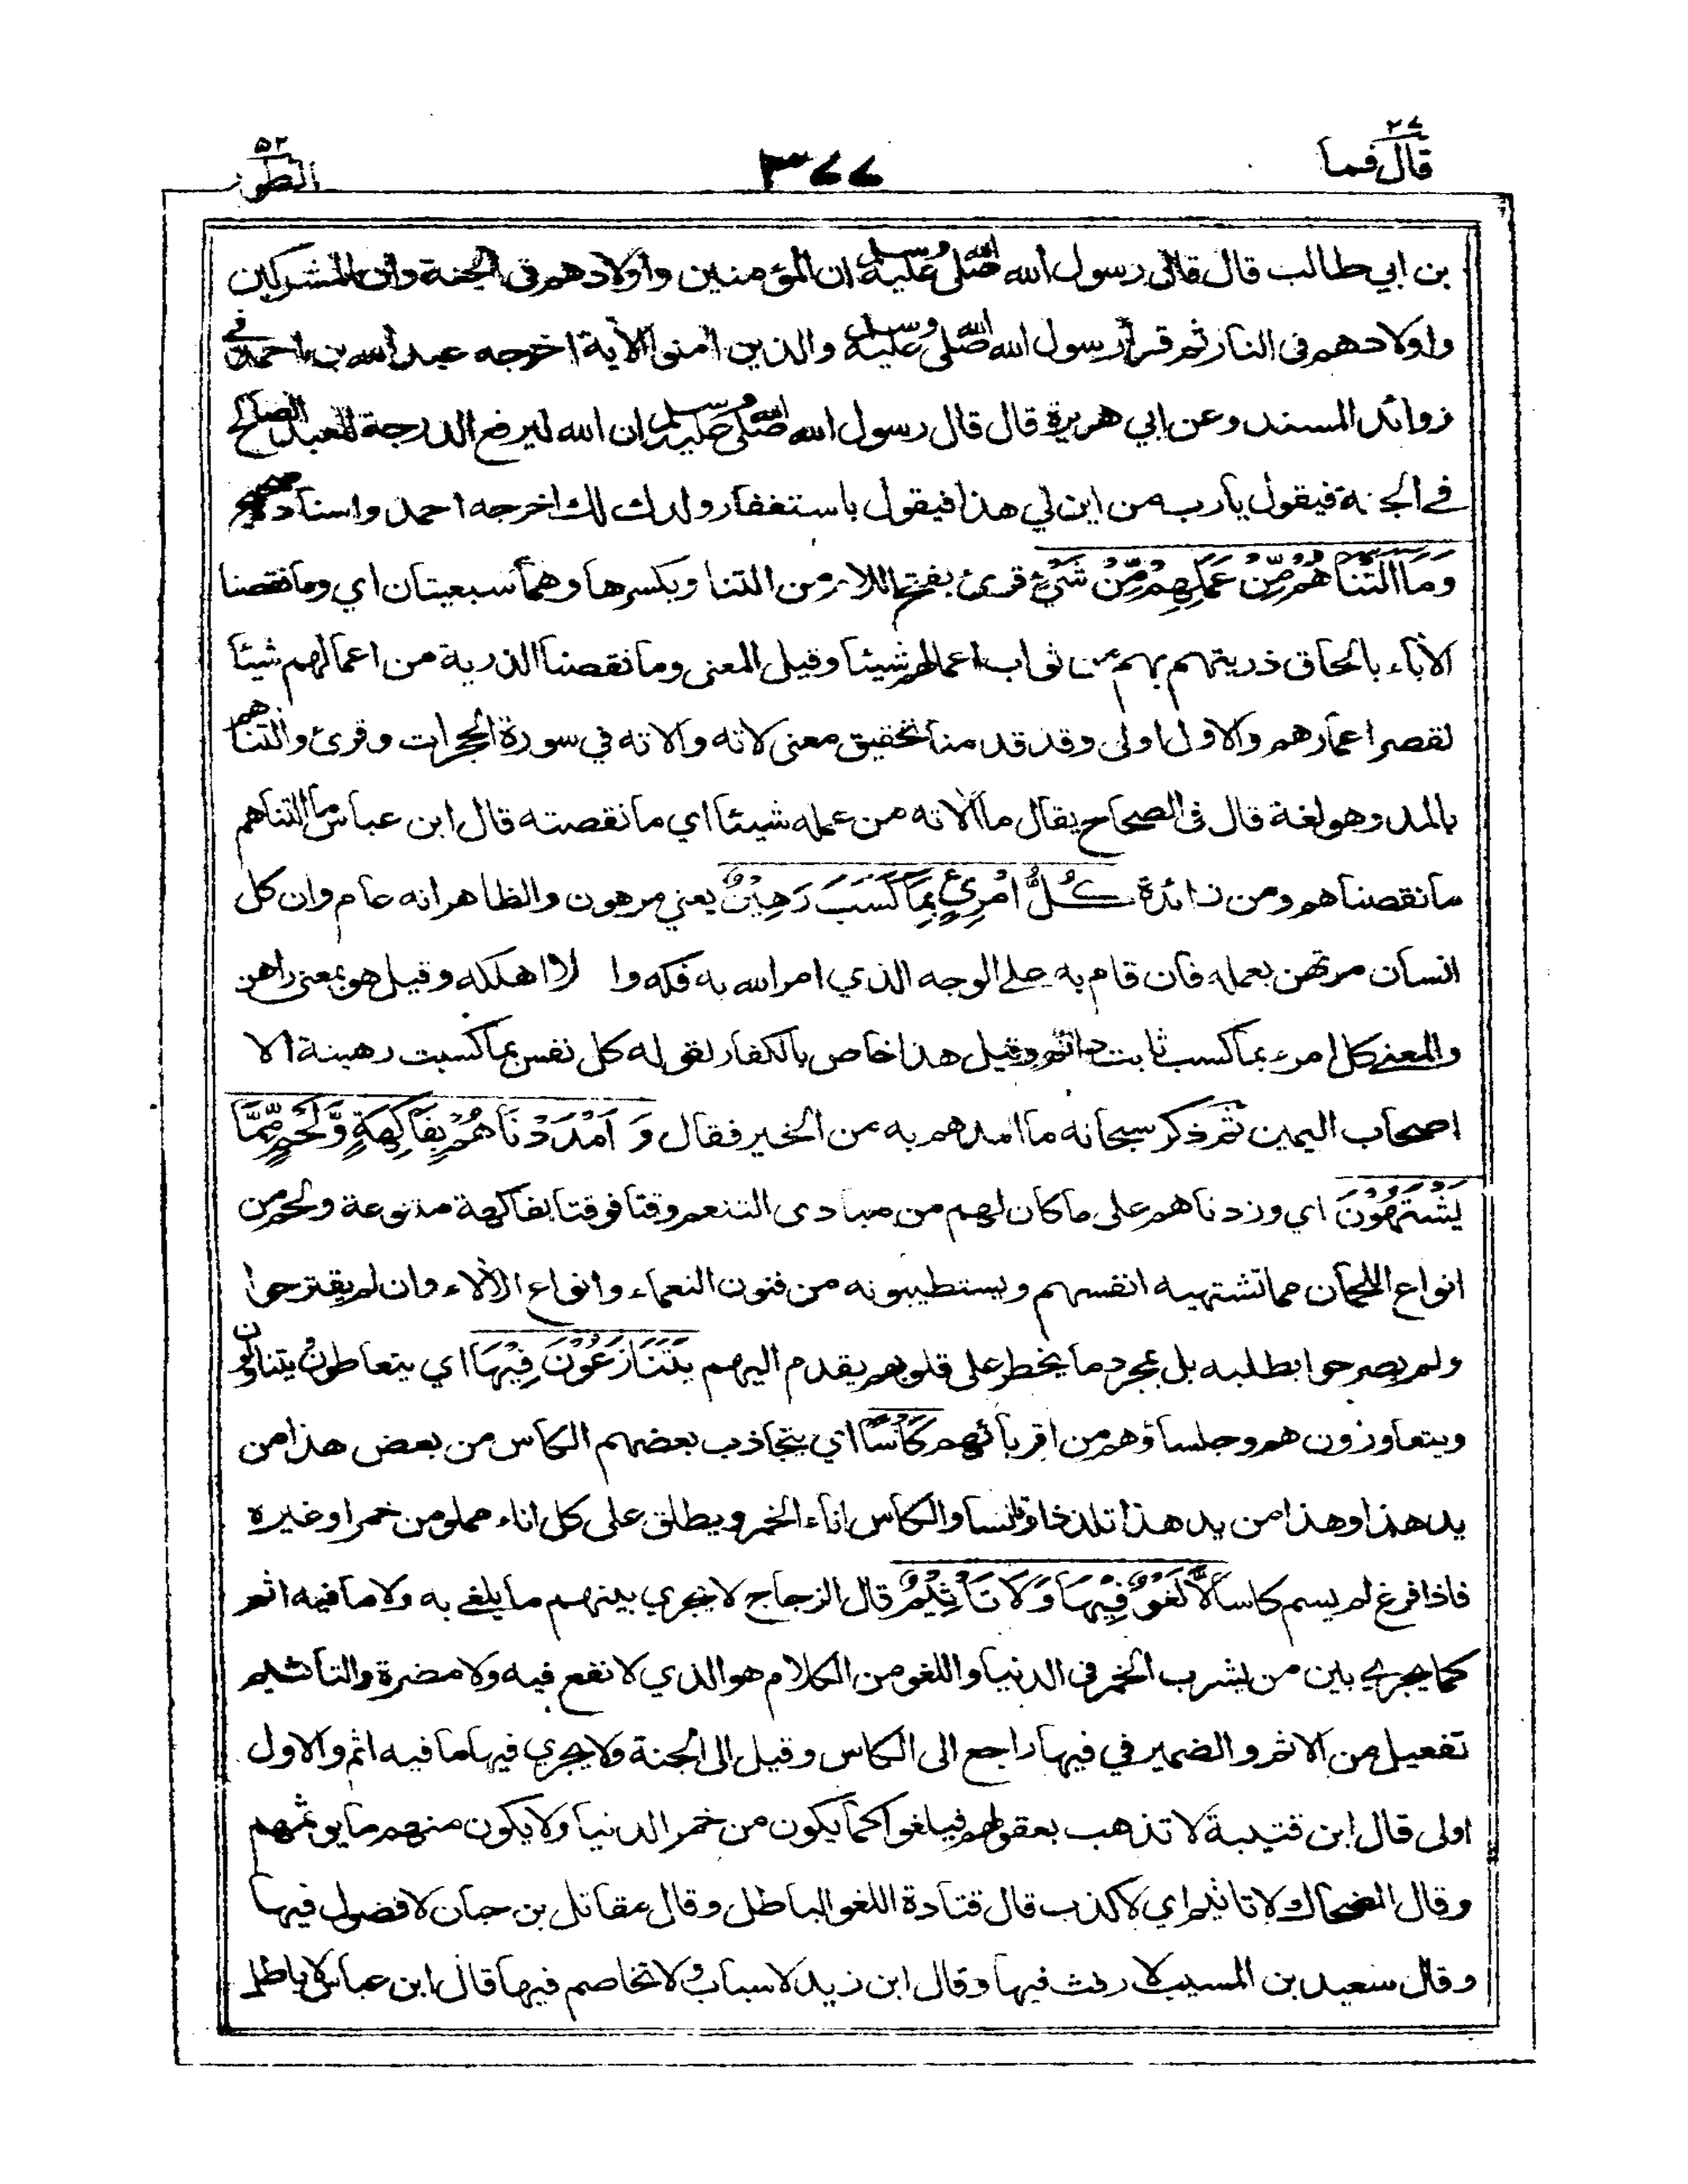 ٢٧
قال فما
٣٧٧
٥٢
الطور
بن ابي طالب قال قال رسول الله صلى الله عليه وسلم ان المؤمنين واولادهم في الجنة وان المشركين
واولادهم فى النار ثم قرأ رسول الله صلى الله عليه وسلم والذين امنوا الآية اخرجه عبد الله بن احمد في
زوائد المسند وعن ابي هريرة قال قال رسول الله صلى الله عليه وسلم ان الله ليرفع الدرجة للعبد الصالح
في الجنة فيقول يا رب من اين لي هذا فيقول باستغفار ولدك لك اخرجه احمد واسناده صحيح
وَمَا أَلَتْنَاهُمْ مِّنْ عَمَلِهِمْ مِّنْ شَيْءٍ قرئ بفتح اللام من التنا وبكسرها وهما سبعيتان اي وما نقصنا
الآباء بالحاق ذريتهم بهم من ثواب اعمالهم شيئا وقيل المعنى وما نقصنا الذرية من اعمالهم شيئا
لقصر اعمارهم والاول اولى وقد قدمنا تحقيق معنى لاته والاته في سورة الحجرات وقرئ والتناهم
بالمد وهو لغة قال فى الصحاح يقال ما آلاته من عمله شيئا اي ما نقصته قال ابن عباس ما التناهم
ما نقصناهم ومن زائدة كُلُّ امْرِئٍ بِمَا كَسَبَ رَهِيْنٌ يعني مرهون والظاهر انه عام وان كل
انسان مرتهن بعمله فان قام به على الوجه الذي امر الله به فكه والا اهلكه وقيل هو بمعنى راهن
والمعنى كل امرء بما كسب ثابت دائم وقيل هذا خاص بالكفار لقوله كل نفس بما كسبت رهينة الا
اصحاب اليمين ثم ذكر سبحانه ما امدهم به من الخير فقال وَ اَمْدَدْنَاهُمْ بِفَاكِهَةٍ وَّلَحْمٍ مِّمَّا
يَشْتَهُوْنَ اي وزدناهم على ما كان لهم من مبادى التنعم وقتا فوقتا بفاكهة متنوعة ولحم من
انواع اللحمان مما تشتهيه انفسهم ويستطيبونه من فنون النعماء وانواع الآلاء وان لم يقترحوا
ولم يصرحوا بطلبه بل بمجرد ما يخطر على قلوبهم يقدم اليهم يَتَنَازَعُوْنَ فِيْهَا اي يتعاطون يتناولون
ويتعاوزون هم وجلساؤهم من اقربائهم كَأْسًا اي يتجاذب بعضهم الكاس من بعض هذا من
يد هذا وهذا من يد هذا تلذذا وتانسا والكاس اناء الخمر ويطلق على كل اناء مملو من خمر او غيره
فاذا فرغ لم يسم كاسا لَّا لَغْوٌ فِيْهَا وَلَا تَأْثِيْمٌ قال الزجاج لا يجري بينهم ما يلغى به ولا ما فيه اثم
كما يجري بين من يشرب الخمر فى الدنيا واللغو من الكلام هو الذي لا نفع فيه ولا مضرة والتأثيم
تفعيل من الاثم والضمير في فيها راجع الى الكاس وقيل الى الجنة ولا يجري فيها ما فيه اثم والاول
اولى قال ابن قتيبة لا تذهب بعقولهم فيلغوا كما يكون من خمر الدنيا ولا يكون منهم ما يوثمهم
وقال الضحاك ولا تاثيم اي لا كذب قال قتادة اللغو الباطل وقال مقاتل بن حيان لا فضول فيها
وقال سعيد بن المسيب لا رفث فيها وقال ابن زيد لا سباب ولا تخاصم فيها قال ابن عباس لا باطل